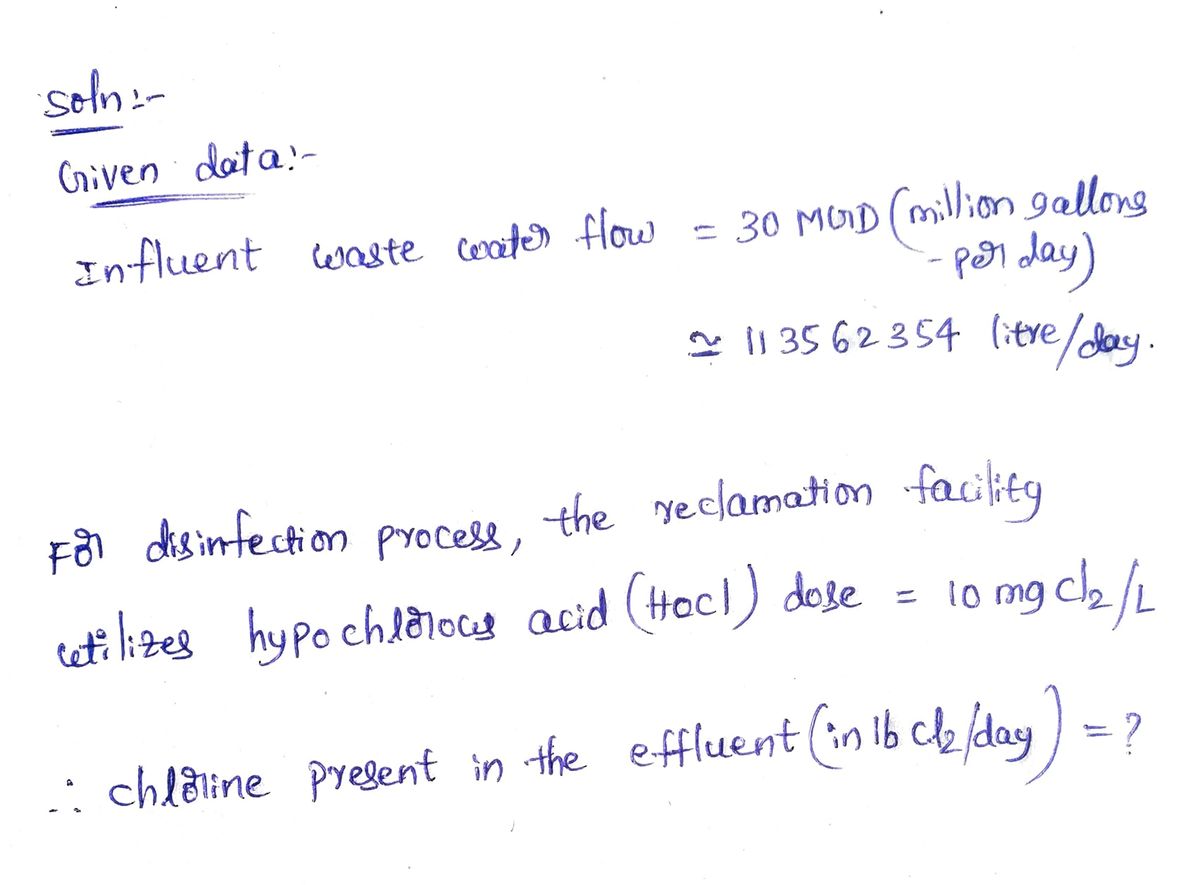 Soln :-
Given data :-
Influent waste water flow = 30 MGD (million gallons
- per day)
≃ 113562354 litre/day.
For disinfection process, the reclamation facility
utilizes hypochlorous acid (Hocl) dose = 10 mg cl₂/L
∴ chlorine present in the effluent (in lb cl₂/day) = ?